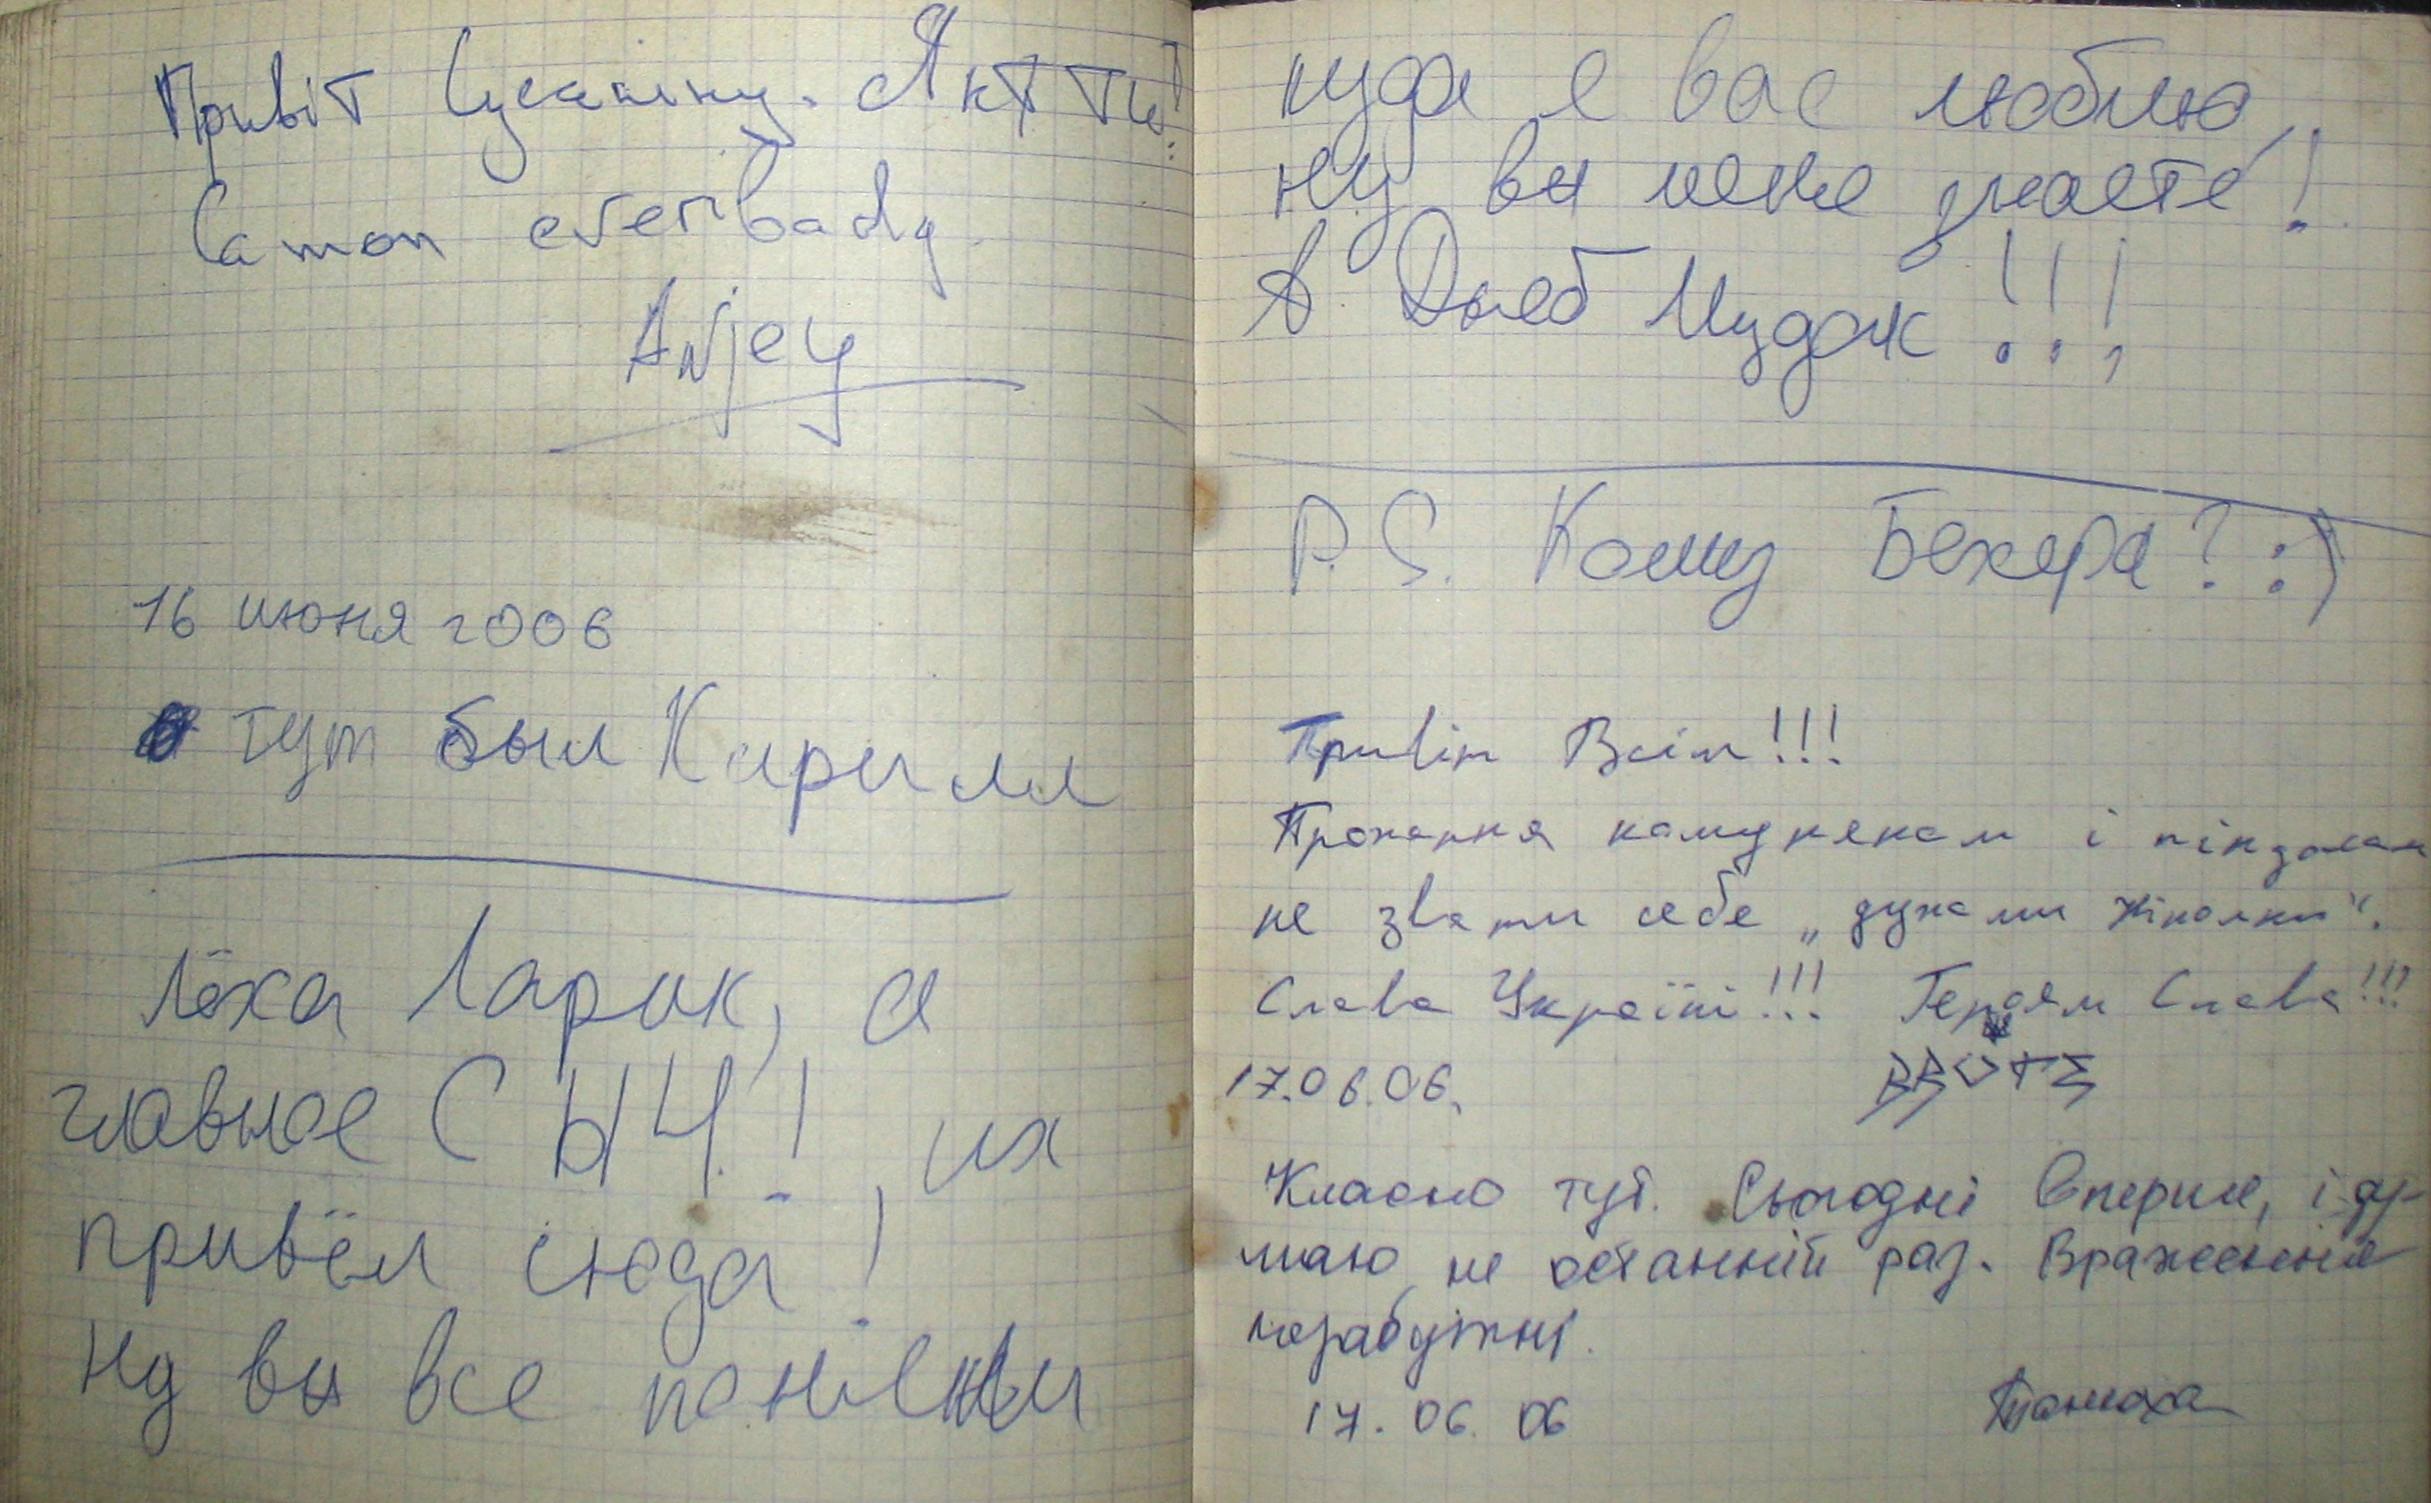 Привіт Як ти?!
Camon everibady
Anjey
16 июня 2006
тут был Кирилл
Лёха Ларик, а
главное СЫЧ!, их
привёл сюда!
Ну вы все
куда я вас люблю,
ну вы меня знаете!
А Дыеб Мудак!!!
P.S. Кому Бехера? :)
Привіт Всім!!!
Прохання комунякам і
не звати себе „духами
Слава Україні!!! Героям Слава!!!
17.06.06. BRUTE
Класно тут. Сьогодні вперше, і ду-
маю не останній раз. Враження
незабутні.
17.06.06 Танюха